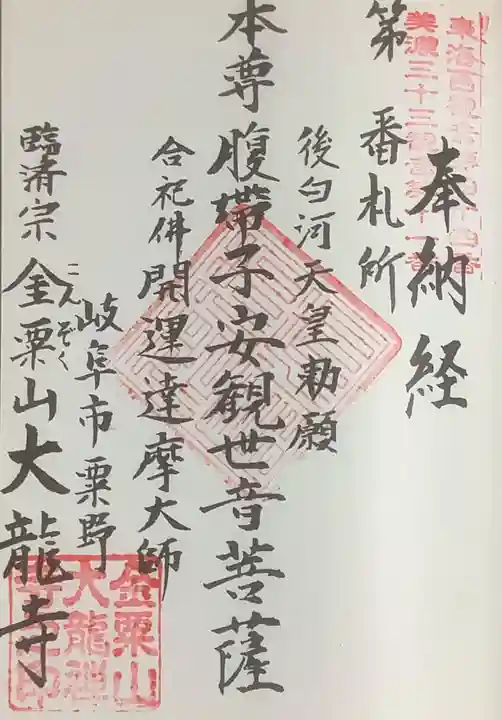 奉納経
第 番札所
後匂河天皇勅願
本尊腹帯子安観世音菩薩
合祀佛開運達摩大師
岐阜市粟野
臨済宗金粟山大龍寺
こんぞく
美濃三十三
金粟山
大龍禅
寺之印